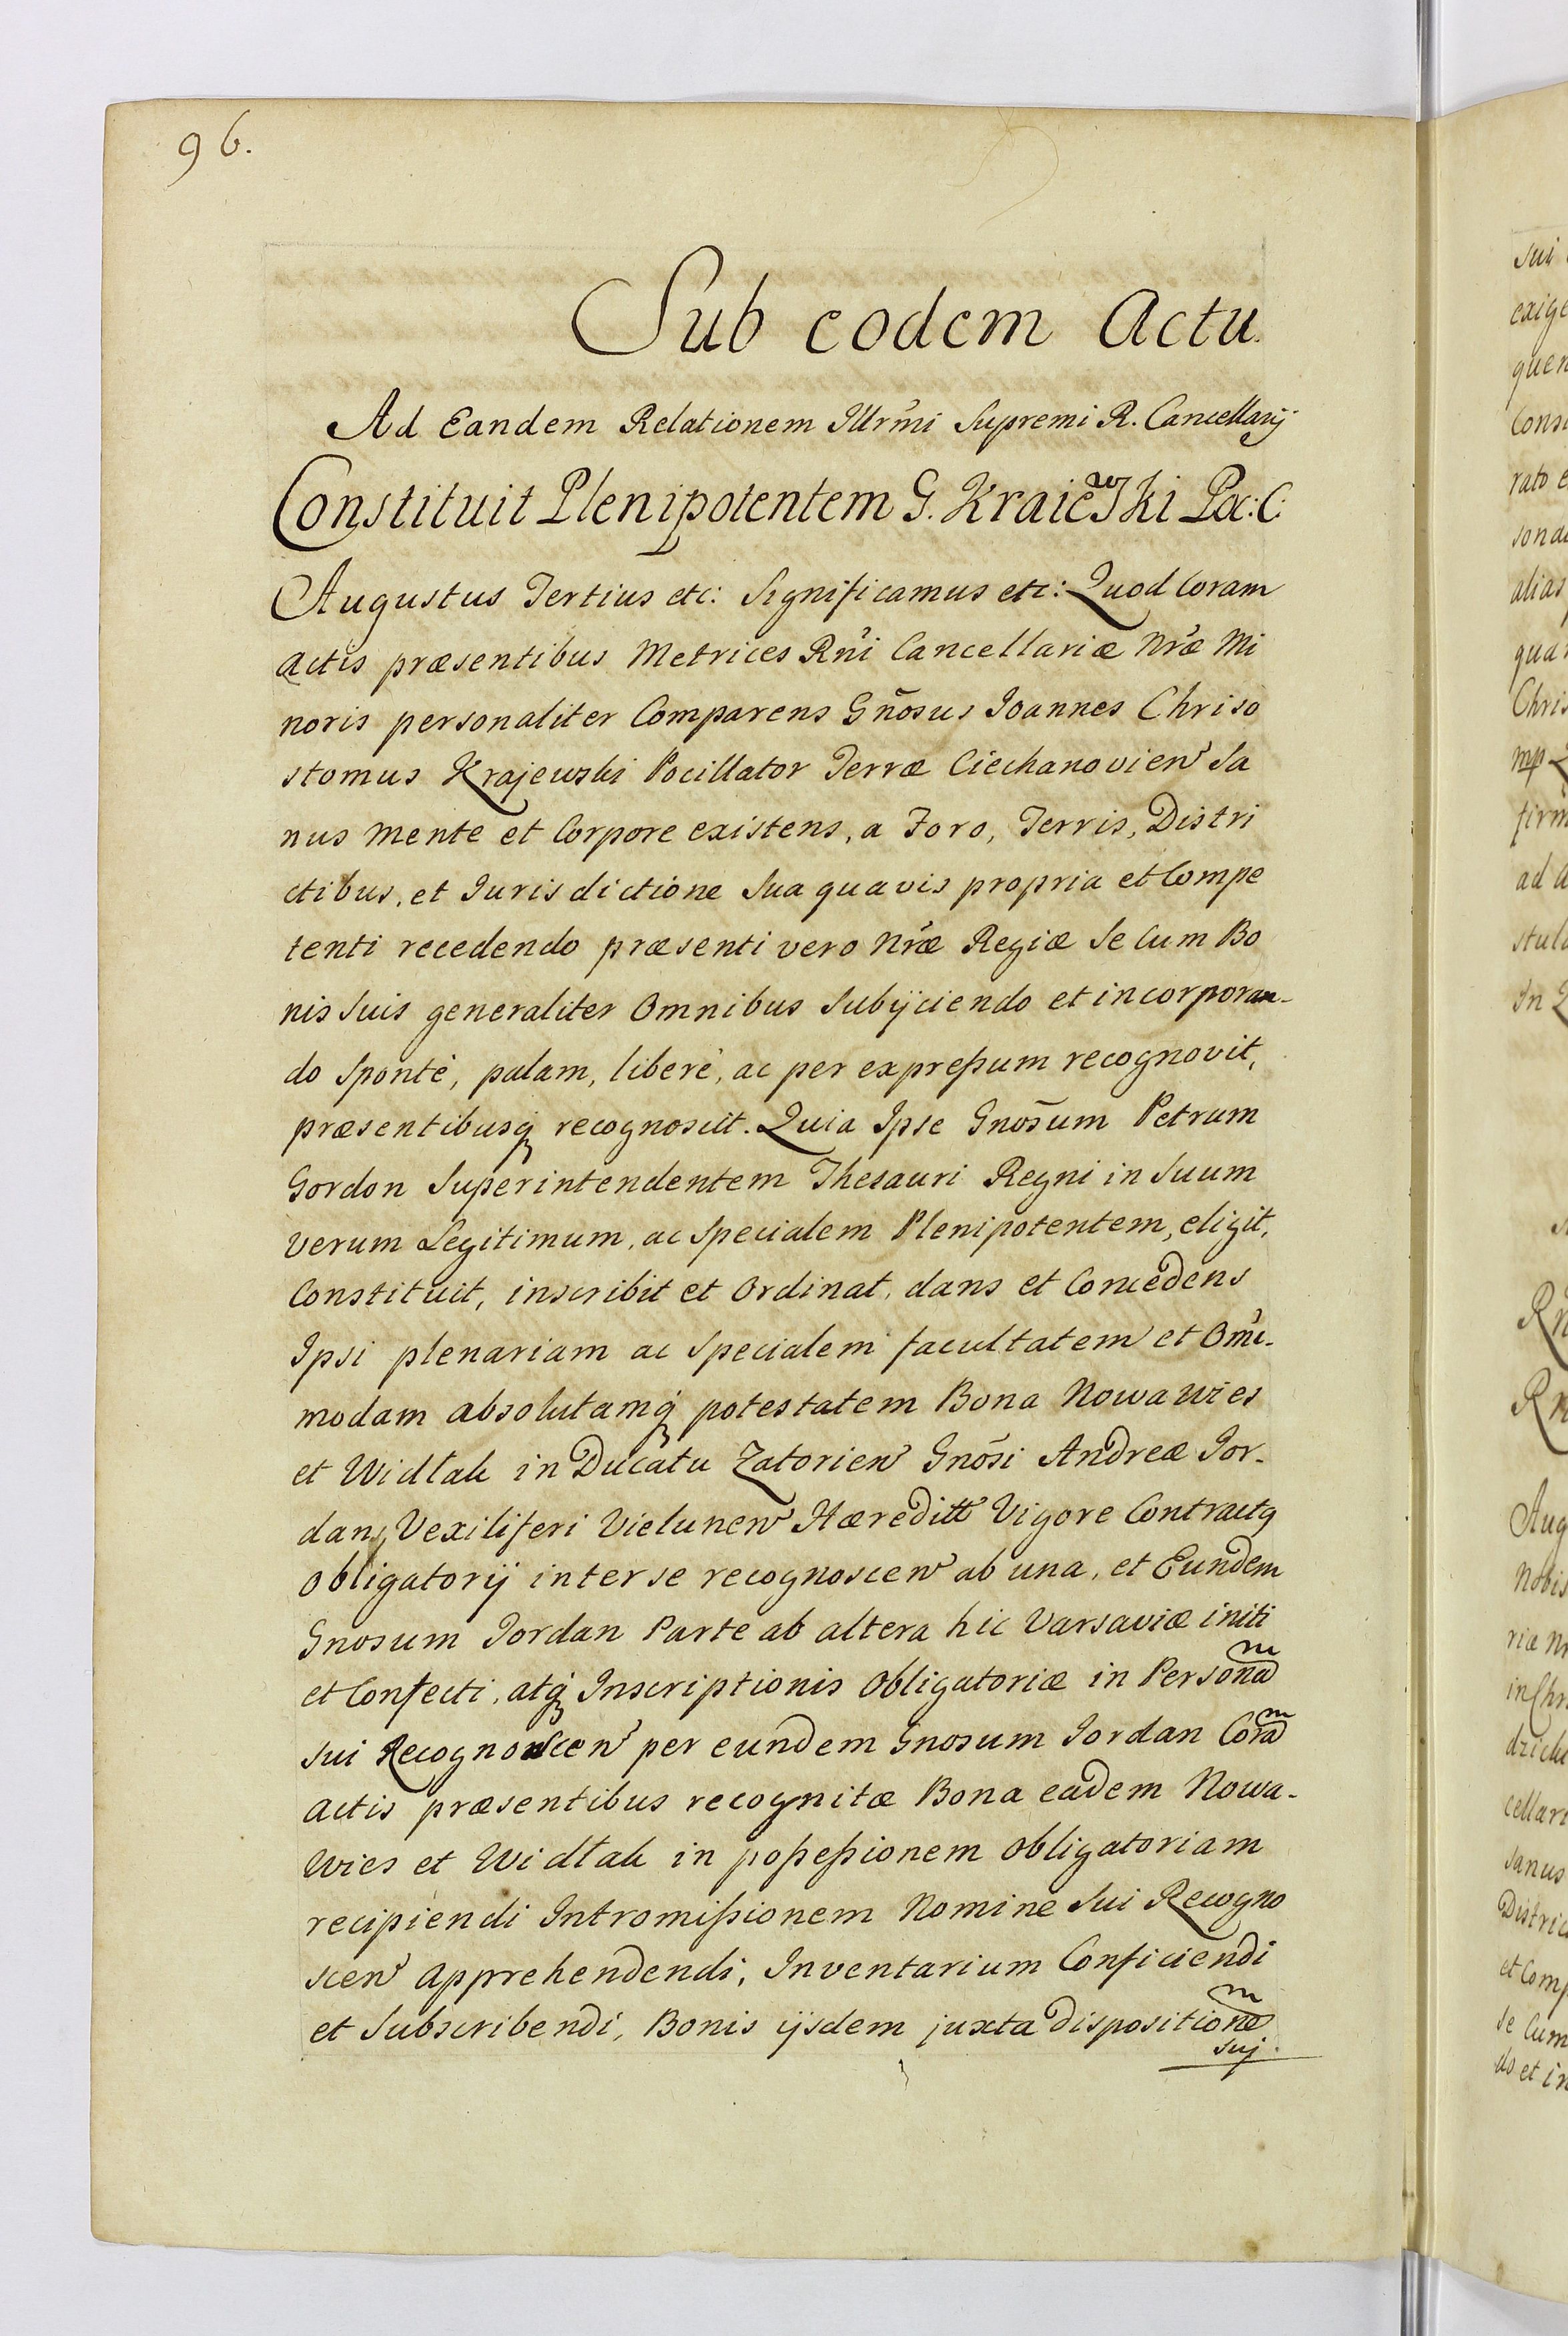 96.
Sub eodem Actu.
Ad Eandem Relationem Illrmi Supremi R. Cancellarij
Constituit Plenipotentem G. Kraiewski Poc: C:
Augustus Tertius etc: Significamus etc: Quod Coram
Actis præsentibus Metrices Rni Cancellariæ Nræ Mi
noris personaliter Comparens Gnosus Joannes Chriso
stomus Krajewski Pocillator Terræ Ciechanovien Sa
nus mente et Corpore existens, a Foro, Terris, Distri
ctibus, et Jurisdictione Sua quavis propria et Compe
tenti recedendo præsenti vero Nræ Regiæ Se Cum Bo
nis Suis generaliter Omnibus Subijciendo et incorporan-
do Spontè, palam, liberè, ac per expreßum recognovit,
præsentibusq recognoscit. Quia Ipse Gnosum Petrum
Gordon Superintendentem Thesauri Regni in Suum
verum Legitimum, ac Specialem Plenipotentem, eligit,
Constituit, inscribit et Ordinat, dans et Concedens
Ipsi plenariam ac Specialem facultatem et Omi-
modam absolutamq potestatem Bona Nowawies
et Widłak in Ducatu Zatorien Gnosi Andreæ Jor-
dan, Vexiliferi Vielunen Hæreditt Vigore Contractq
Obligatorij inter se recognoscen ab una, et Eundem
Gnosum Jordan Parte ab altera hic Varsaviæ initi
et Confecti, atq Inscriptionis Obligatoriæ in Personam
sui Recognoscen per eundem Gnosum Jordan Coram
Actis præsentibus recognitæ Bona eadem Nowa-
wies et Widłak in poßeßionem obligatoriam
recipiendi Intromißionem Nomine Sui Recogno
scen apprehendendi, Inventarium Conficiendi
et Subscribendi, Bonis ijsdem juxta dispositionem
suj.
sui
exige
quen
Consi
rato e
sona
alias
qua
Chris
mp
firm
ad a
stula
In
Rn
Rn
Aug
Nobis
riæ Nr
in Chr
dzicki
cellari
sanus
Distric
et Comp
se Cum
do et in